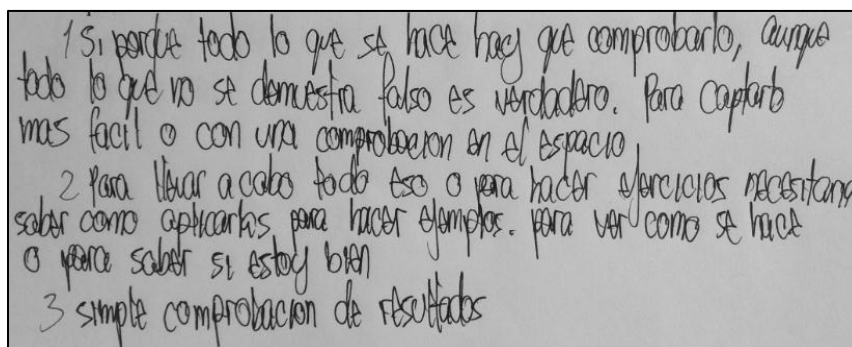 1 Si porque todo lo que se hace hay que comprobarlo, aunque
todo lo que no se demuestra falso es verdadero. Para captarlo
mas facil o con una comprobacion en el espacio
2 Para llevar a cabo todo eso o para hacer ejercicios necesitando
saber como aplicarlos para hacer ejemplos. para ver como se hace
o para saber si estoy bien
3 simple comprobacion de resultados